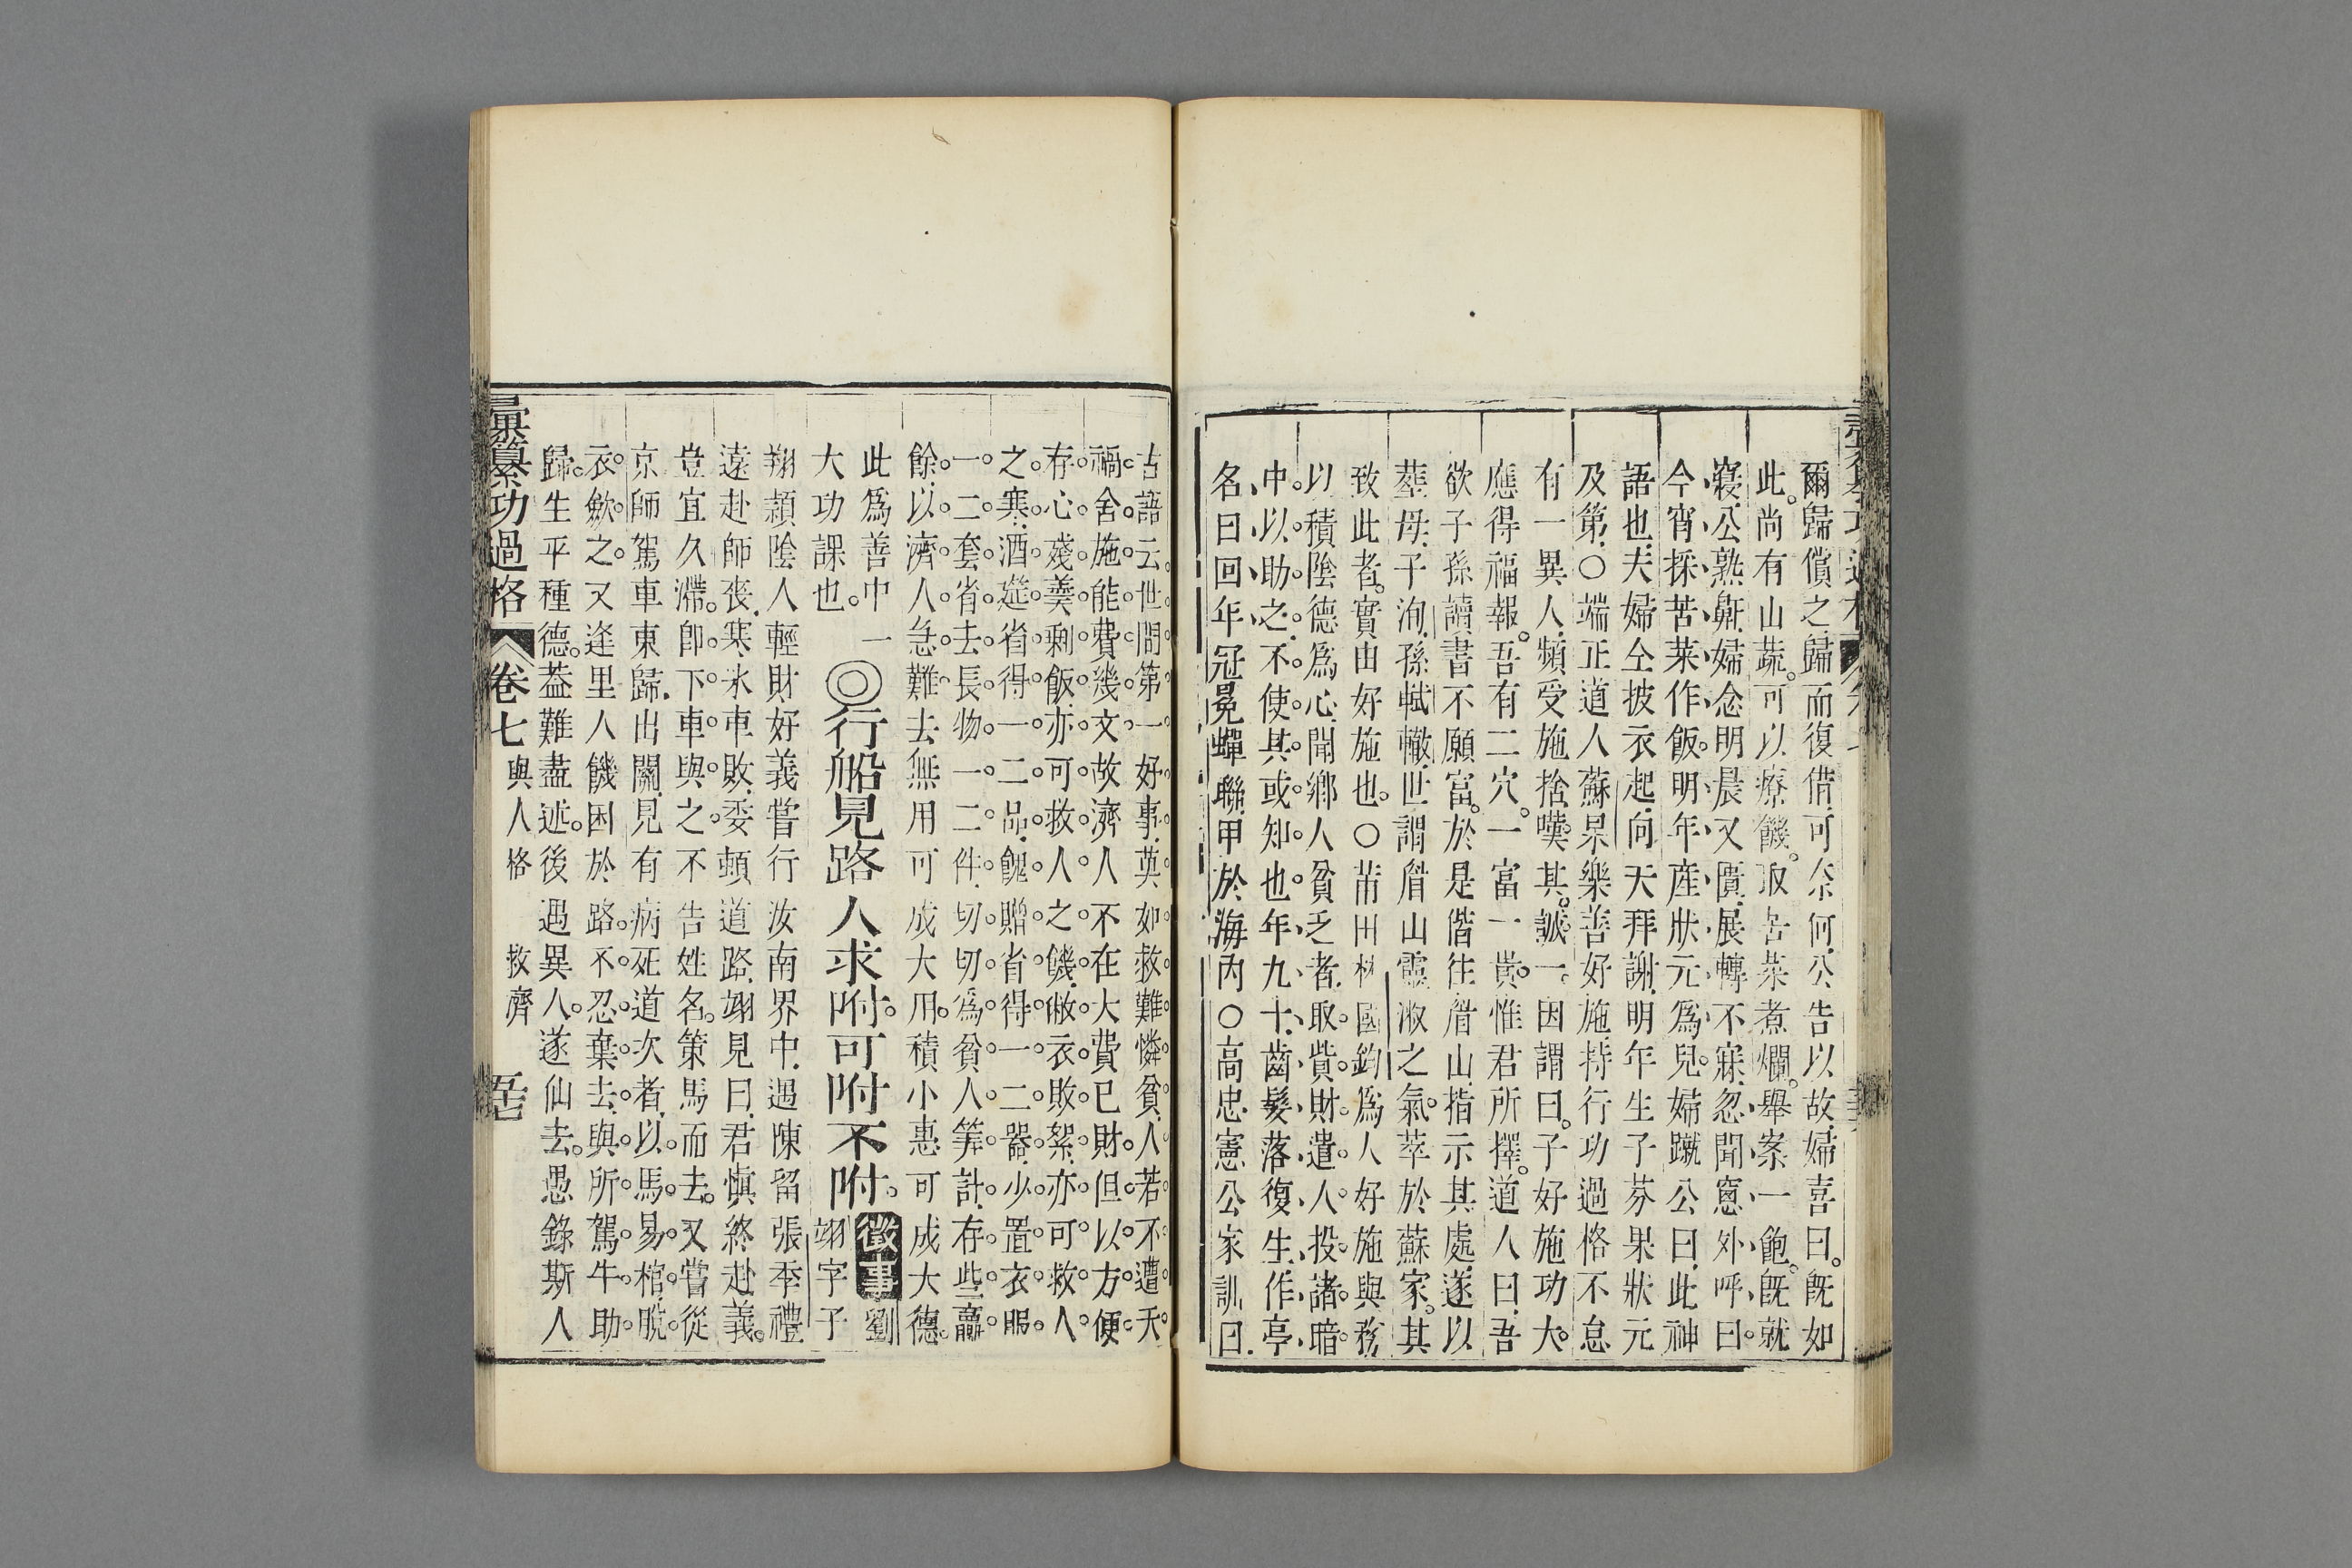 爾歸償之歸而復借可奈何公告以故婦喜曰既如
此尚有山蔬可以療饑取苦菜煮爛舉案一飽既就
寢公熟鼾婦念明晨又匱展轉不寐忽聞窻外呼曰
今宵採苦菜作飯明年產狀元爲兒婦蹴公曰此神
語也夫婦仝披衣起向天拜謝明年生子芬果狀元
及第○端正道人蘇杲樂善好施持行功過格不怠
有一異人頻受施捨嘆其誠一因謂曰子好施功大
應得福報吾有二穴一富一貴惟君所擇道人曰吾
欲子孫讀書不願富於是偕往眉山指示其處遂以
葬母子洵孫軾轍世謂眉山靈淑之氣萃於蘇家其
致此者實由好施也○莆田林國鈞爲人好施與務
以積陰德爲心聞鄉人貧乏者取貲財遣人投諸暗
中以助之不使其或知也年九十齒髮落復生作亭
名曰回年冠冕蟬聯甲於海內○高忠憲公家訓曰
古語云世間第一好事莫如救難憐貧人若不遭天
禍舍施能費幾文故濟人不在大費已財但以方便
存心殘羹剩飯亦可救人之饑敝衣敗絮亦可救人
之寒酒筵省得一二品餽贈省得一二器少置衣服
一二套省去長物一二件切切爲貧人筭計存些贏
餘以濟人急難去無用可成大用積小惠可成大德
此爲善中一
大功課也
◎行船見路人求附可附不附
徵事
劉
翊字子
翔潁陰人輕財好義嘗行汝南界中遇陳留張季禮
遠赴師喪寒氷車敗委頓道路翊見曰君慎終赴義
豈宜久滯卽下車與之不告姓名策馬而去又嘗從
京師駕車東歸出關見有病死道次者以馬易棺脫
衣歛之又逢里人饑困於路不忍棄去與所駕牛助
歸生平種德葢難盡述後遇異人遂仙去愚錄斯人
彙纂功過格
卷七
與人格
救濟